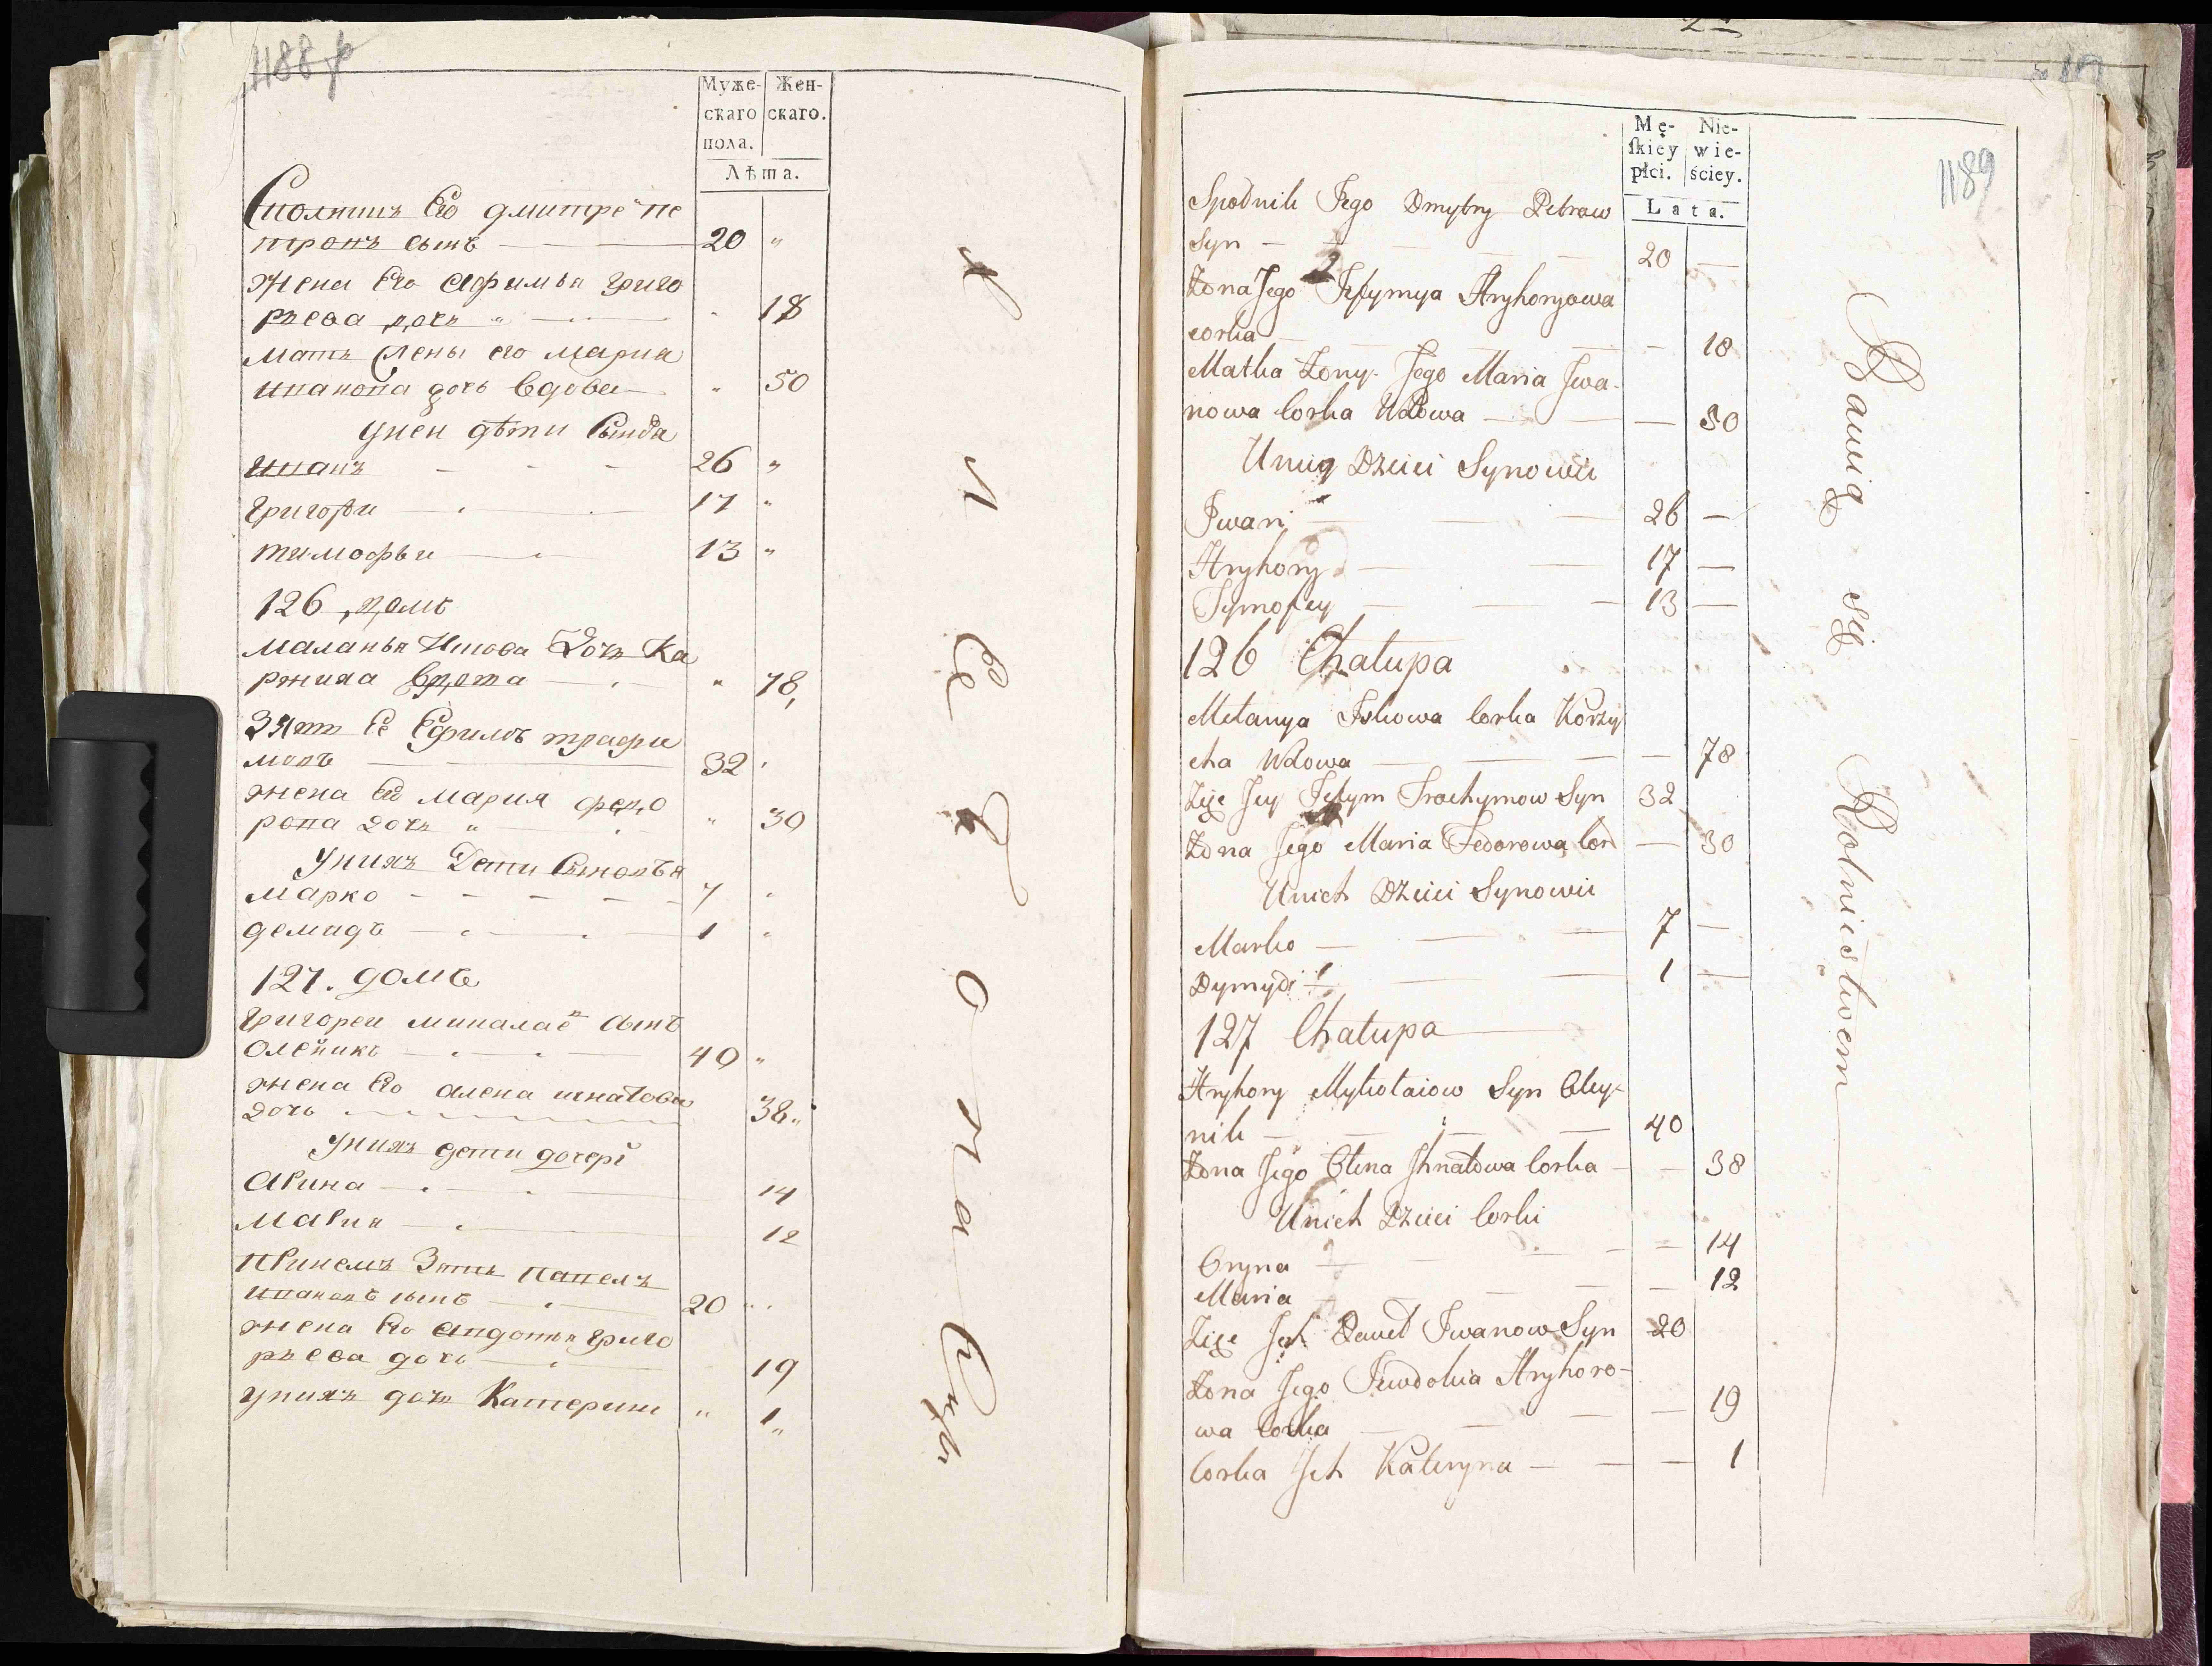 1188
Муже-
скаго
пола.
Жен-
скаго.
Лѣта.
Сполнитъ Его дмитре пе
тровъ сынъ 20 "
жена Его Афимья Григо
рьева дочь " 18
мать жены его мария
иванова дочь вдова " 50
унеи дѣти
иванъ 26 "
Григори 17 "
тимофѣи 13 "
126 домъ
маланья дочь Ка
ржиха вдова " 78
Зять Ее Ефимъ трафи
мовъ 32
жена Его Мария федо
рова дочь " " 30
унихъ Дети Сыновья
марко 7
демидъ 1
127. домъ
григореи миколаевъ сынъ
Олейникъ 40 "
жена Его алена игнатова
дочь 38
унихъ дети дочери
Арина 14
Мария 12
Приемъ Зять павелъ
ивановъ сынъ 20
жена Его авдотья григо
рьева дочь 19
унихъ дочь Катерина " 1
1189
Mę-
skiey
płci.
Nie-
wie-
ściey.
Lata.
Spodnik Jego Dmytry Petrow
Syn 20 —
Żona Jego Jefymya Hryhoryowa
corka — 18
Matka Żony Jego Maria Jwa-
nowa Corka Wdowa — 50
Unieij Dzieci Synowie
Jwan 26 —
Hryhory 17 —
Tymofey 13 —
126 Chałupa
Mełanya Jskowa Corka Korży
cha Wdowa — 78
Zięć Jey Jefym Trochymow Syn 32
Żona Jego Maria Fedorowa Cor — 30
Unich Dzieci Synowie
Marko 7 —
Dymyd 1 —
127 Chałupa
Hryhory Mykołaiow Syn Oley-
nik 40
Żona Jego Ołena Jhnatowa Corka — 38
Unich Dzieci Corki
Oryna — 14
Maria — 12
Zięć Jch Paweł Jwanow Syn 20
Żona Jego Jewdokia Hryhoro-
wa Corka — 19
Corka Jch Kateryna — 1
Bawią się Rolnistwem